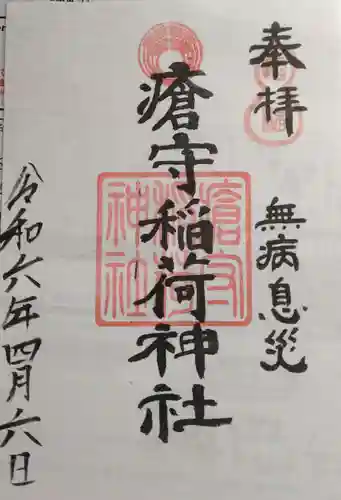 奉拝
無病息災
瘡守稲荷神社
令和六年四月六日
瘡守
稲荷
神社